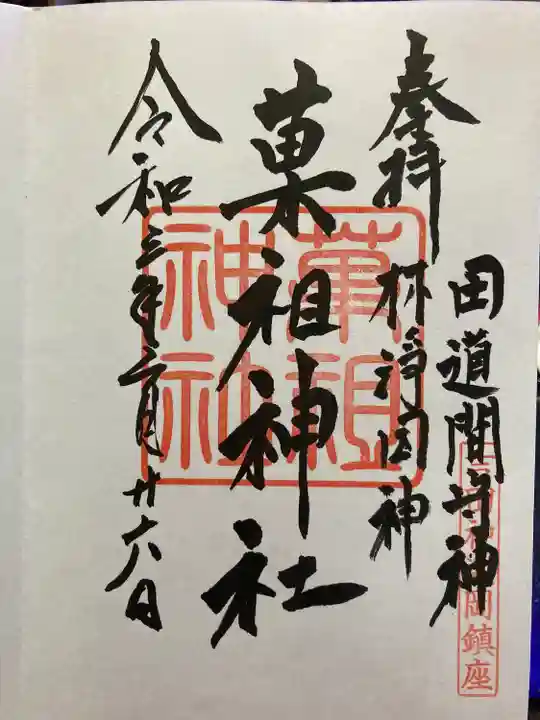 奉拝
田道間守神
林浄因神
菓祖神社
令和三年二月廿六日
菓祖
神社
岡鎮座